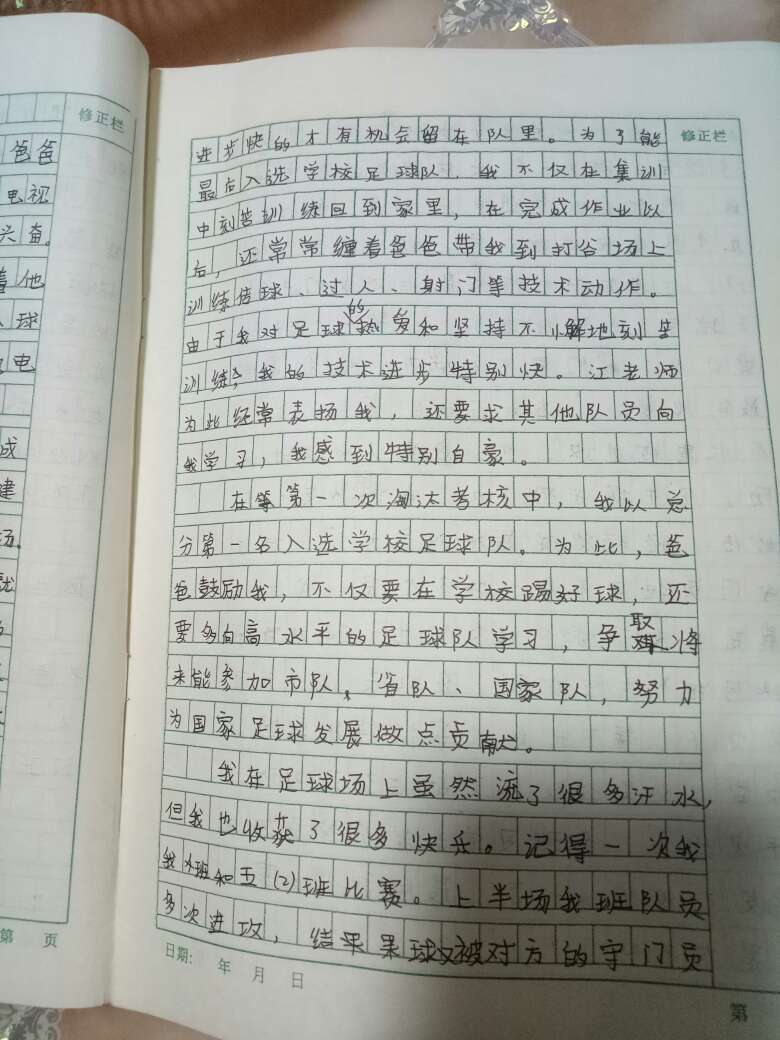 修正栏
爸爸
电视
兴奋。
着他
球
电
成
建
场。
第 页
修正栏
进步快的才有机会留在队里。为了能
最后入选学校足球队，我不仅在集训
中刻苦训练回到家里，在完成作业以
后，还常常缠着爸爸带我到打谷场上
训练传球、过人、射门等技术动作。
由于我对足球的热爱和坚持不懈地刻苦
训练，我的技术进步特别快。江老师
为此经常表扬我，还要求其他队员向
我学习，我感到特别自豪。
在等第一次淘汰考核中，我以总
分第一名入选学校足球队。为此，爸
爸鼓励我，不仅要在学校踢好球，还
要多向高水平的足球队学习，争取将
来能参加市队、省队、国家队，努力
为国家足球发展做点贡献。
我在足球场上虽然流了很多汗水，
但我也收获了很多快乐。记得一次我
我班和五（2）班比赛。上半场我班队员
多次进攻，结果果球又被对方的守门员
日期： 年 月 日
第